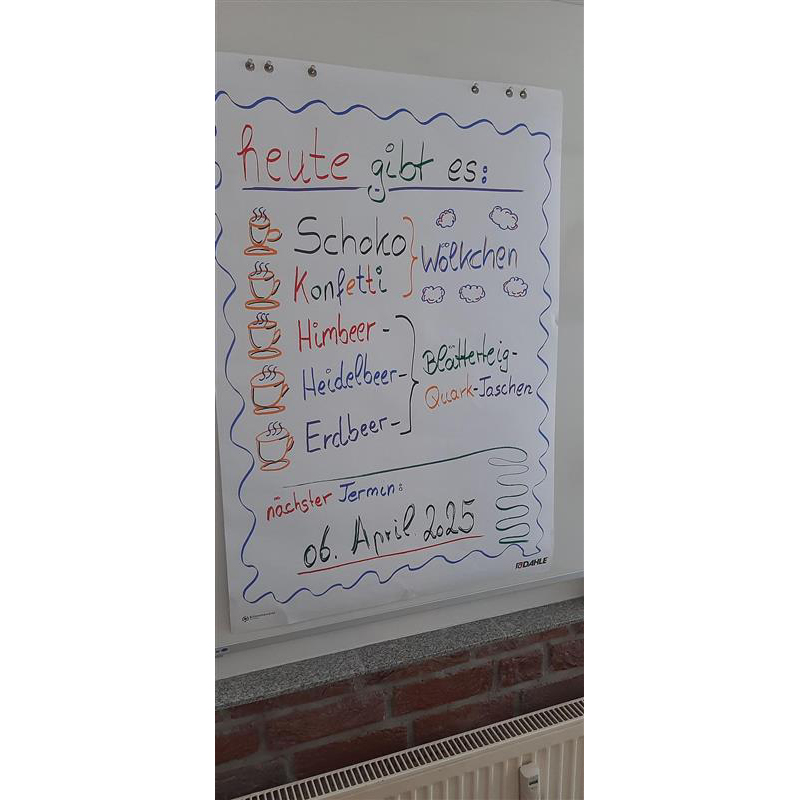 heute gibt es:
Schoko
Konfetti
Wölkchen
Himbeer-
Heidelbeer-
Erdbeer-
Blätterteig-
Quark-Taschen
nächster Termin:
06. April 2025
DAHLE